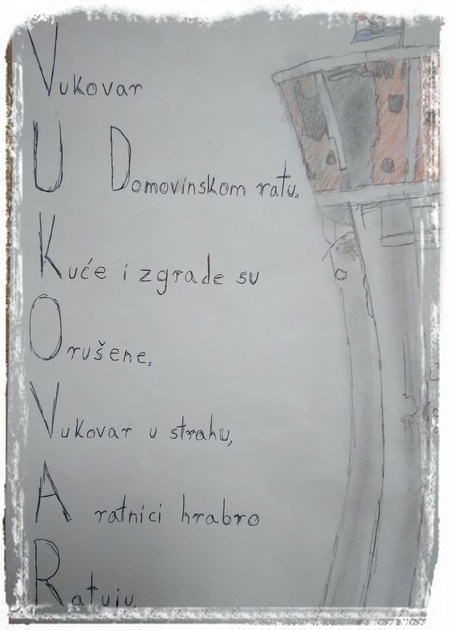 Vukovar
U Domovinskom ratu.
Kuće i zgrade su
Orušene.
Vukovar u strahu,
A ratnici hrabro
Ratuju.